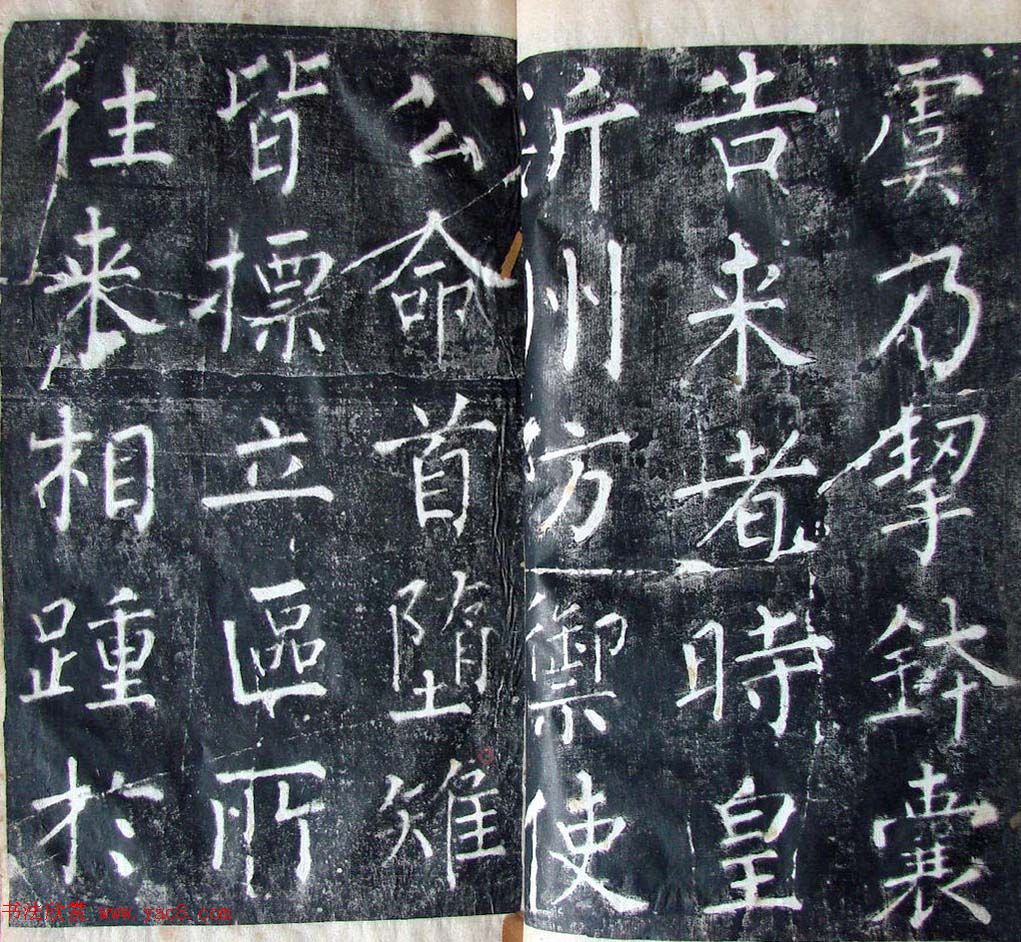 虞乃挈鉢囊
告来者時皇
沂州防禦使
公命首墮雉
皆標立區所
往来相踵於
书法欣赏 www.yac8.com